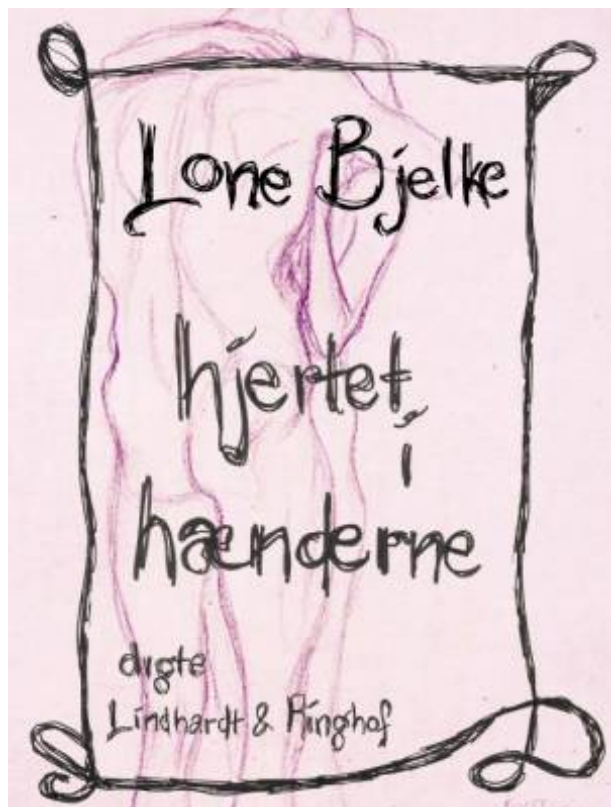 Lone Bjelke
hjertet
i
hænderne
digte
Lindhardt & Ringhof